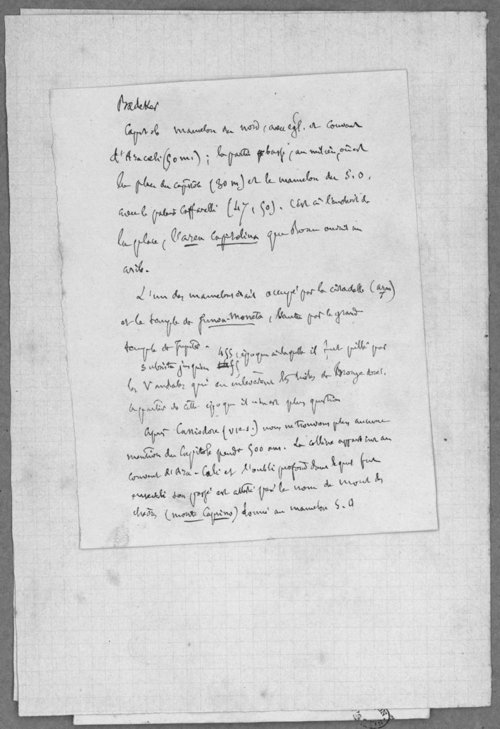 Baedeker
Capitole mamelon du nord, avec égl. et couvent
d'Aracœli (50 m.) ; la partie basse, au milieu, où est
la place du capitole (30 m) et le mamelon du S.O.
avec le palais Caffarelli (47,50). C'est à l'endroit de
la place, l'area capitolina que Romulus ouvrit un
asile.
L'un des mamelons était occupé par la citadelle (arx)
et le temple de Junon-Moneta, l'autre par le grand
temple de Jupiter.
subsista jusqu'en 455, époque à laquelle il fut pillé par
les Vandales qui en enlevèrent les tuiles de Bronze doré.
A partir de cette époque il n'est plus question
Après Cassiodore (VIe s.) nous ne trouvons plus aucune
mention du Capitole pendt 500 ans. La colline appartient au
couvent d'Ara-Cœli et l'oubli profond dans lequel fut
enseveli son passé est attesté par le nom de mont des
chèvres (monte Caprino) donné au mamelon S.O